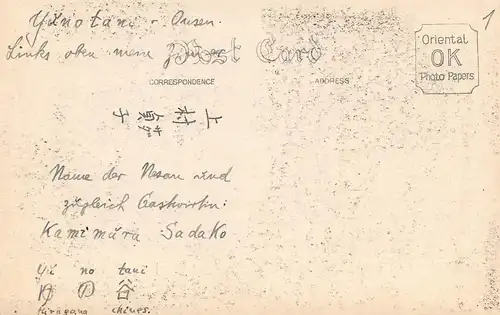 Yunotani - Onsen.
Links oben mein Zimmer
Post Card
CORRESPONDENCE
ADDRESS
Oriental
OK
Photo Papers
1
上村貞子
Name der Nesan und
zugleich Gastwirtin:
Kamimura Sadako
yi no tani
ゆ の 谷
hiragana chines.